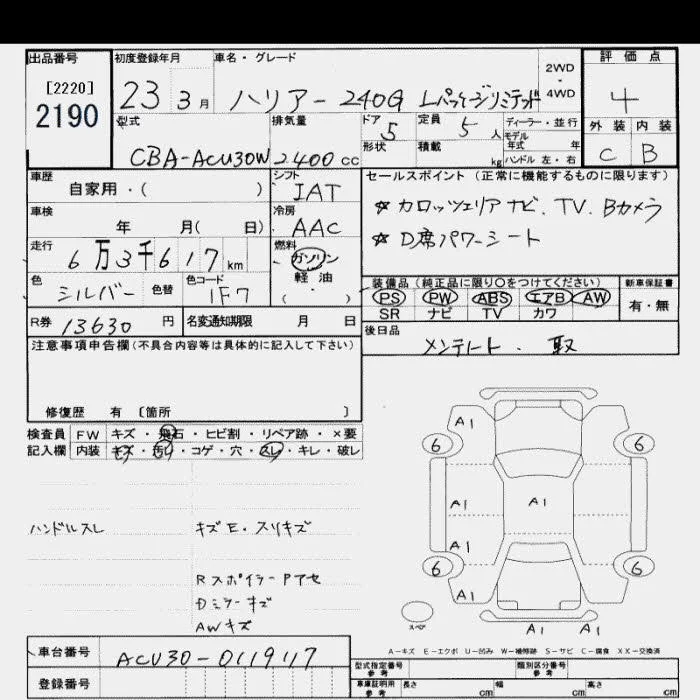 出品番号
[2220]
2190
初度登録年月
23 3月
車名・グレード
ハリアー 240G Lパッケージリミテッド
2WD
・
4WD
評価点
4
外装 内装
C B
型式
CBA-ACU30W
排気量
2400 cc
ドア 5
形状
定員 5 人
積載 kg
ディーラー・並行
モデル年式 年
ハンドル 左・右
車歴
自家用・( )
シフト
IAT
車検
年 月( 日)
冷房
AAC
走行
6万3千617 km
燃料
ガソリン
・
軽油
( )
色
シルバー 色替
色コード
1F7
R券 13630 円
名変通知期限 月 日
セールスポイント(正常に機能するものに限ります)
☆ カロッツェリア ナビ、TV、Bカメラ
☆ D席パワーシート
装備品(純正品に限り○をつけてください)
PS PW ABS エアB AW
SR ナビ TV カワ
新車保証書
有・無
後日品
メンテノート・取
注意事項申告欄(不具合内容等は具体的に記入して下さい)
修復歴 有 〔箇所 〕
検査員記入欄
FW キズ・飛石・ヒビ割・リペア跡・×要
内装 キズ・汚れ・コゲ・穴・スレ・キレ・破レ
ハンドルスレ
キズE・スリキズ
RスポイラーPアセ
Dミラーキズ
AWキズ
A1
6 6
A1 A1
A1
6 6
A1
A1 A1
スペア
A-キズ E-エクボ U-凹み W-補修跡 S-サビ C-腐食 XX-交換済
車台番号 ACU30-0119117
登録番号
型式指定番号
参考
類別区分番号
参考
車庫証明用
参考
長さ cm 幅 cm 高さ cm